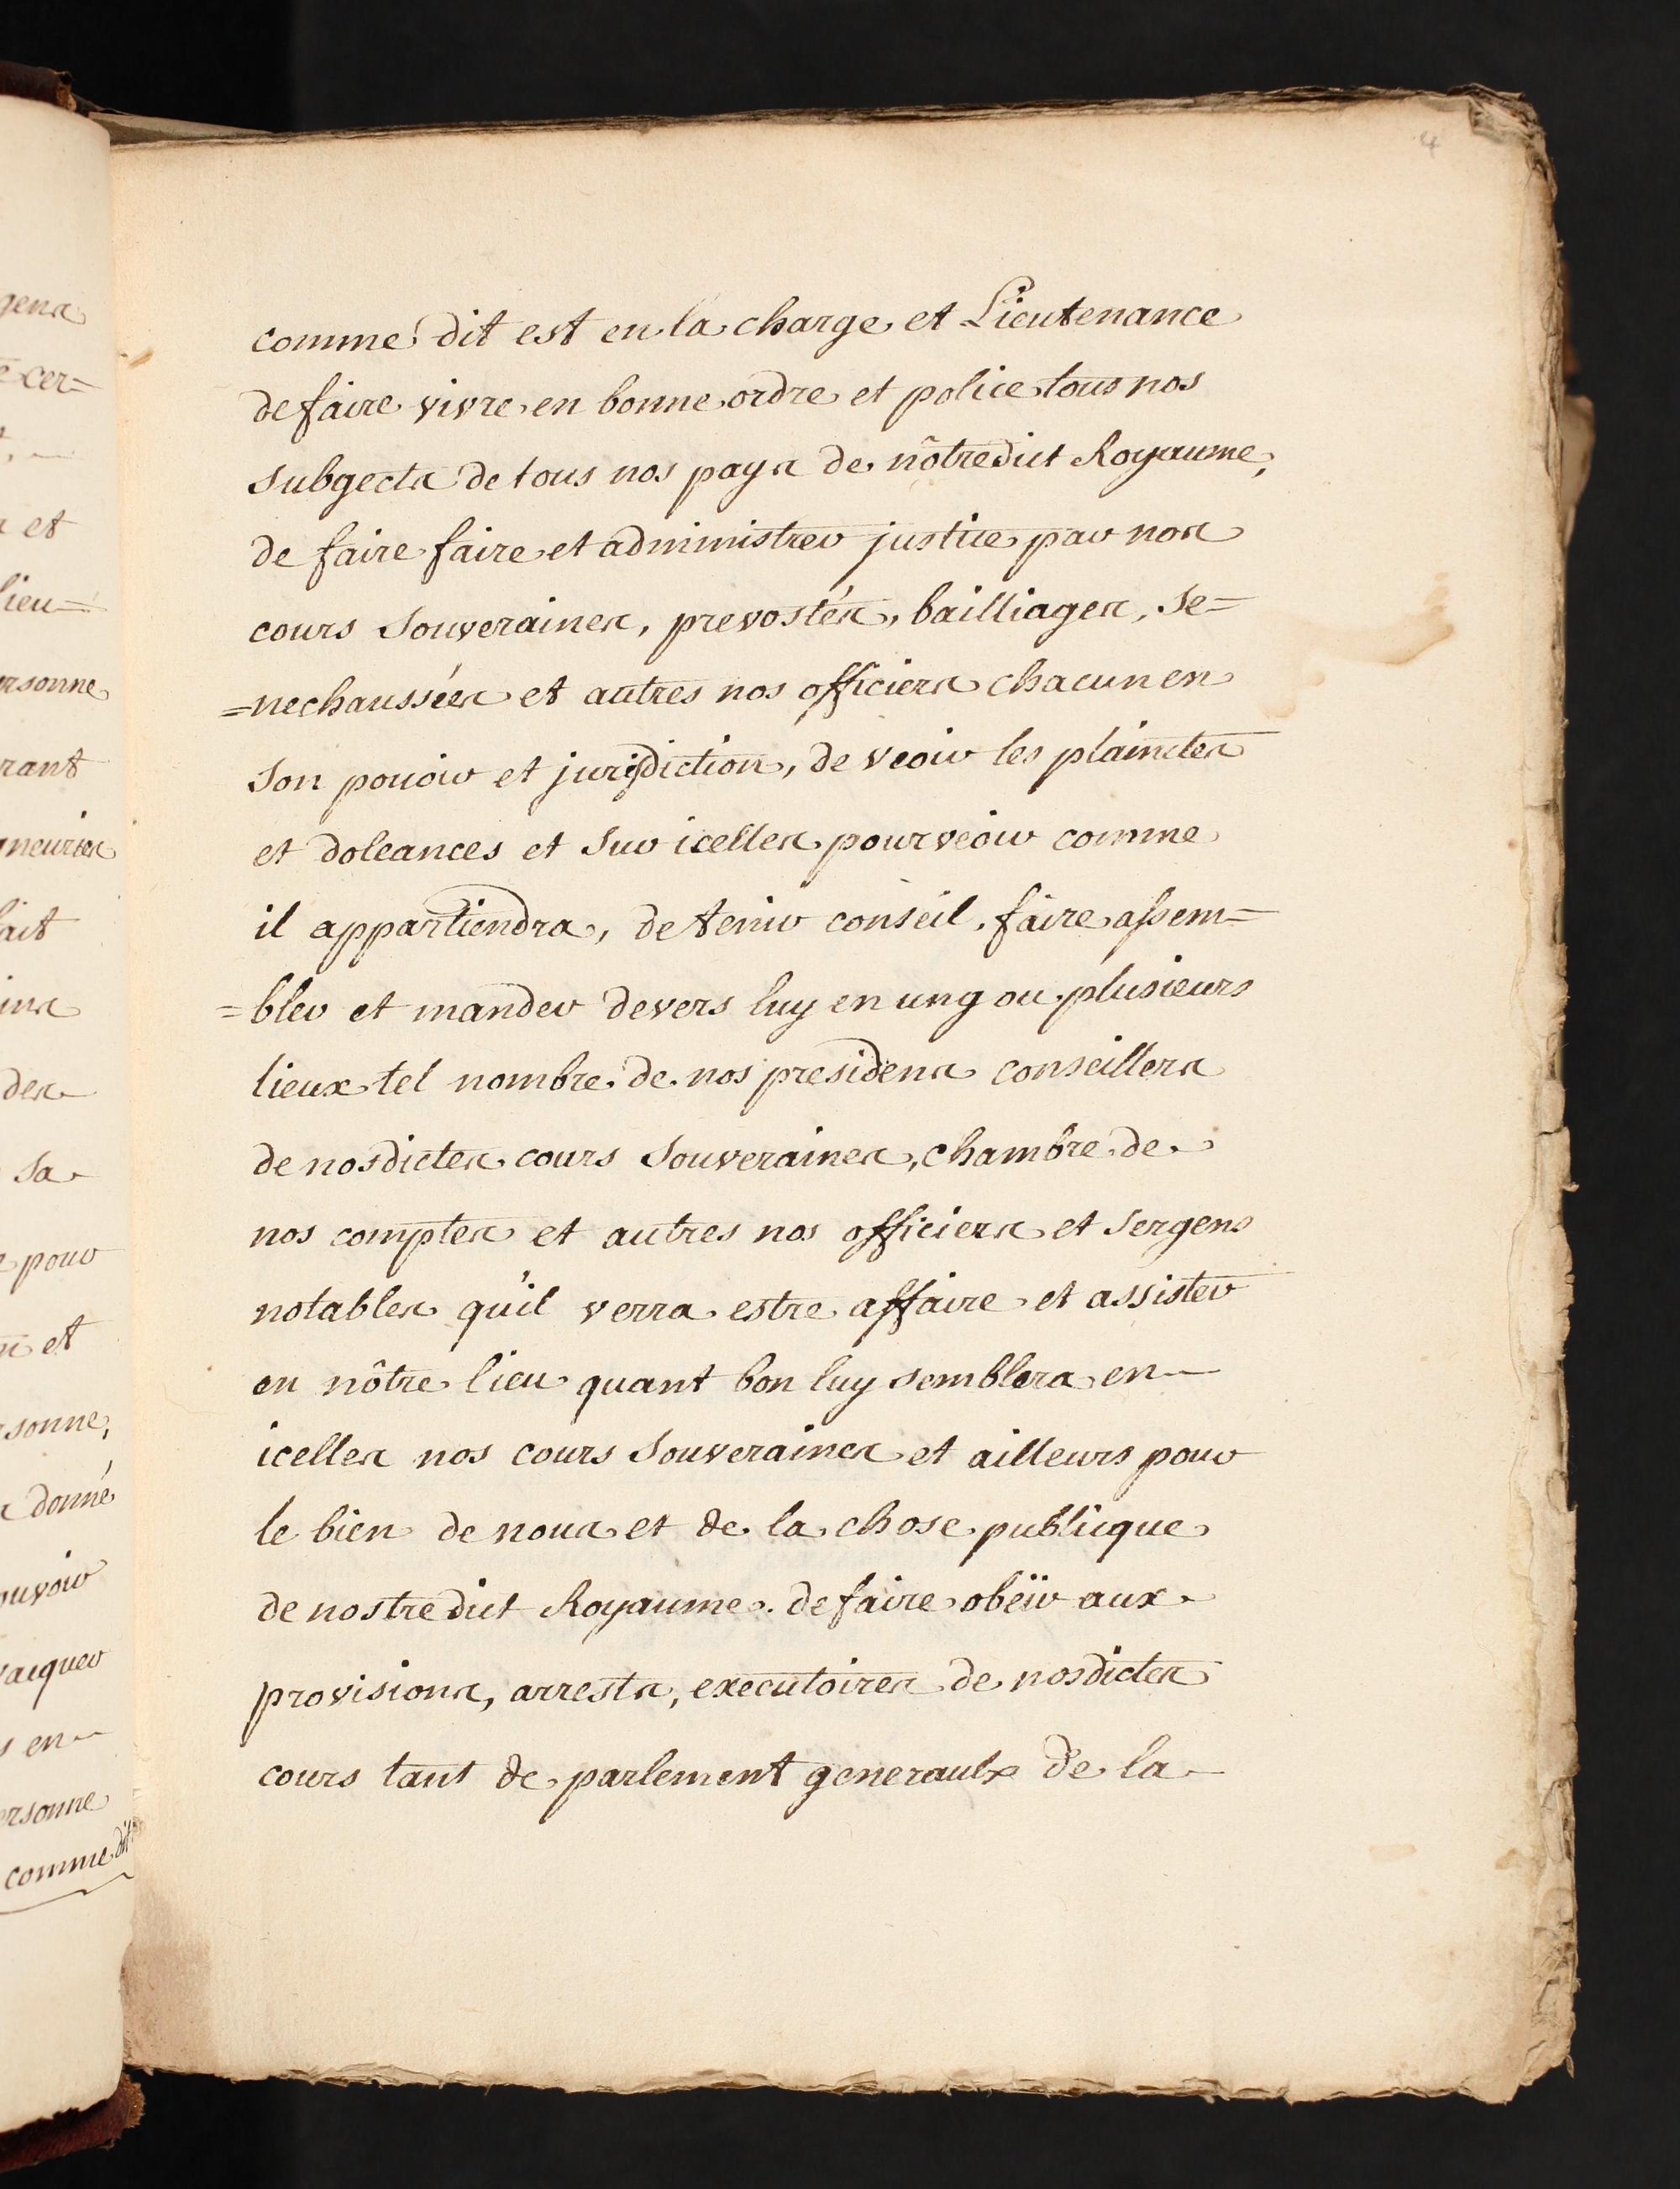 4
comme dit est en la charge et Lieutenance
de faire vivre en bonne ordre et police tous nos
subgects de tous nos pays de nôtredict Royaume,
de faire faire et administrer justice par nos
cours souveraines, prevostés, bailliages, se=
=nechaussées et autres nos officiers chacun en
son pouoir et jurisdiction, de veoir les plainctes
et doleances et sur icelles pourveoir comme
il appartiendra, de tenir conseil, faire assem=
=bler et mander devers luy en ung ou plusieurs
lieux tel nombre de nos presidens conseillers
de nosdictes cours souveraines, chambre de
nos comptes et autres nos officiers et sergens
notables qu'il verra estre affaire et assister
en nôtre lieu quant bon luy semblera en
icelles nos cours souveraines et ailleurs pour
le bien de nous et de la chose publicque
de nostredict Royaume. de faire obëir aux
provisions, arrests, executoires de nosdictes
cours tant de parlement generaulx de la
gens
cer=
et
lieu=
rsonne
rant
gneuries
fait
des
sa
pour
et
sonne,
donné
ouvoir
en
ersonne
comme dit